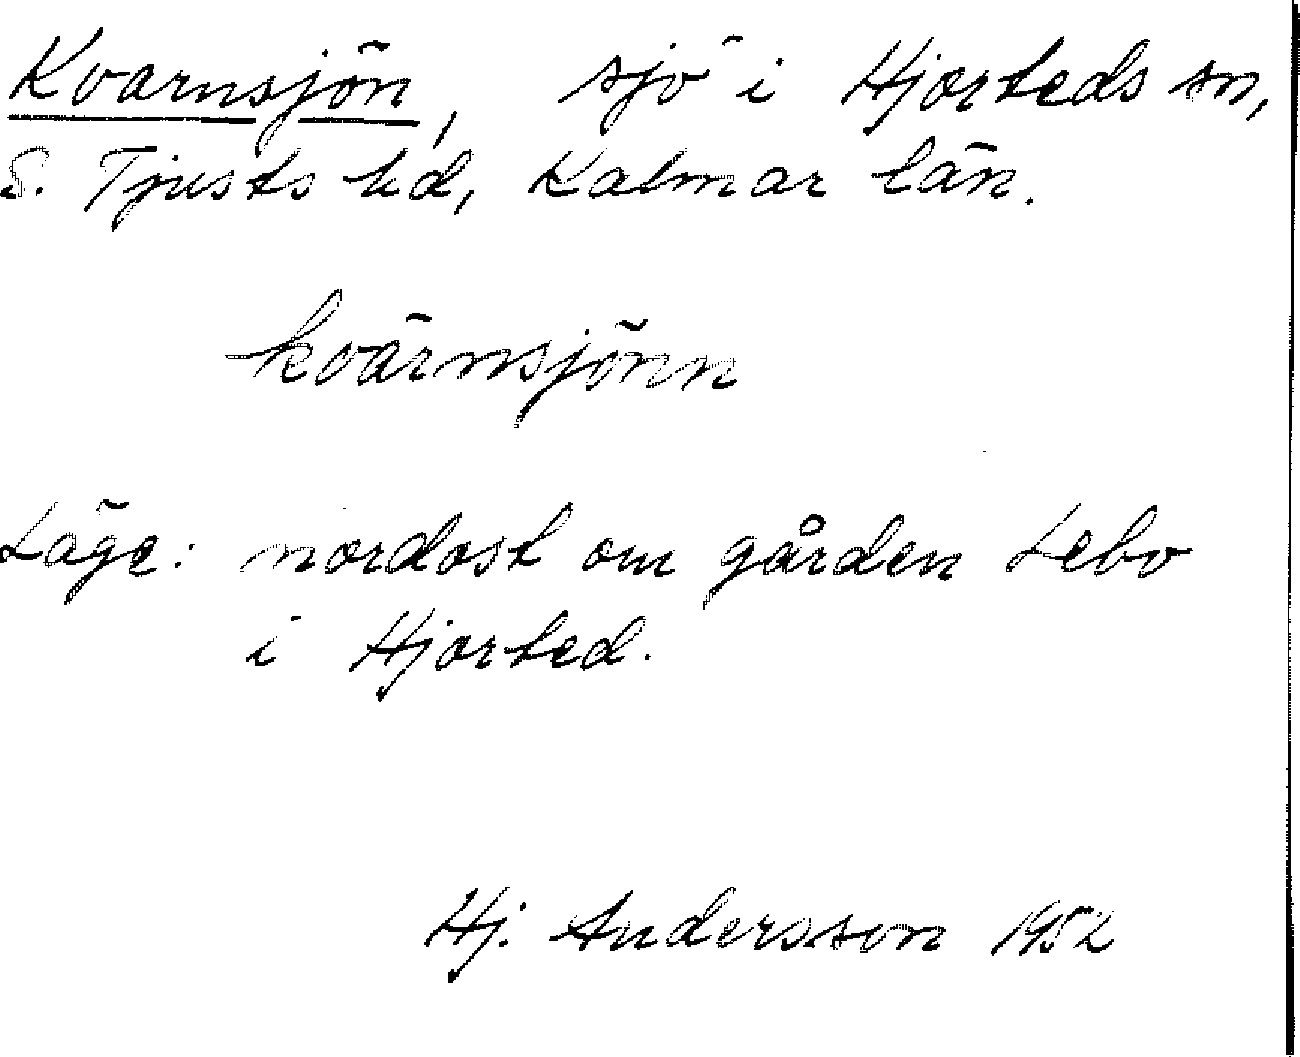 Kvarnsjön, sjö i Hjorteds sn,
S. Tjusts hd, Kalmar län.
kvärnsjönn
Läge: nordost om gården Lebo
i Hjorted.
Hj. Andersson 1952